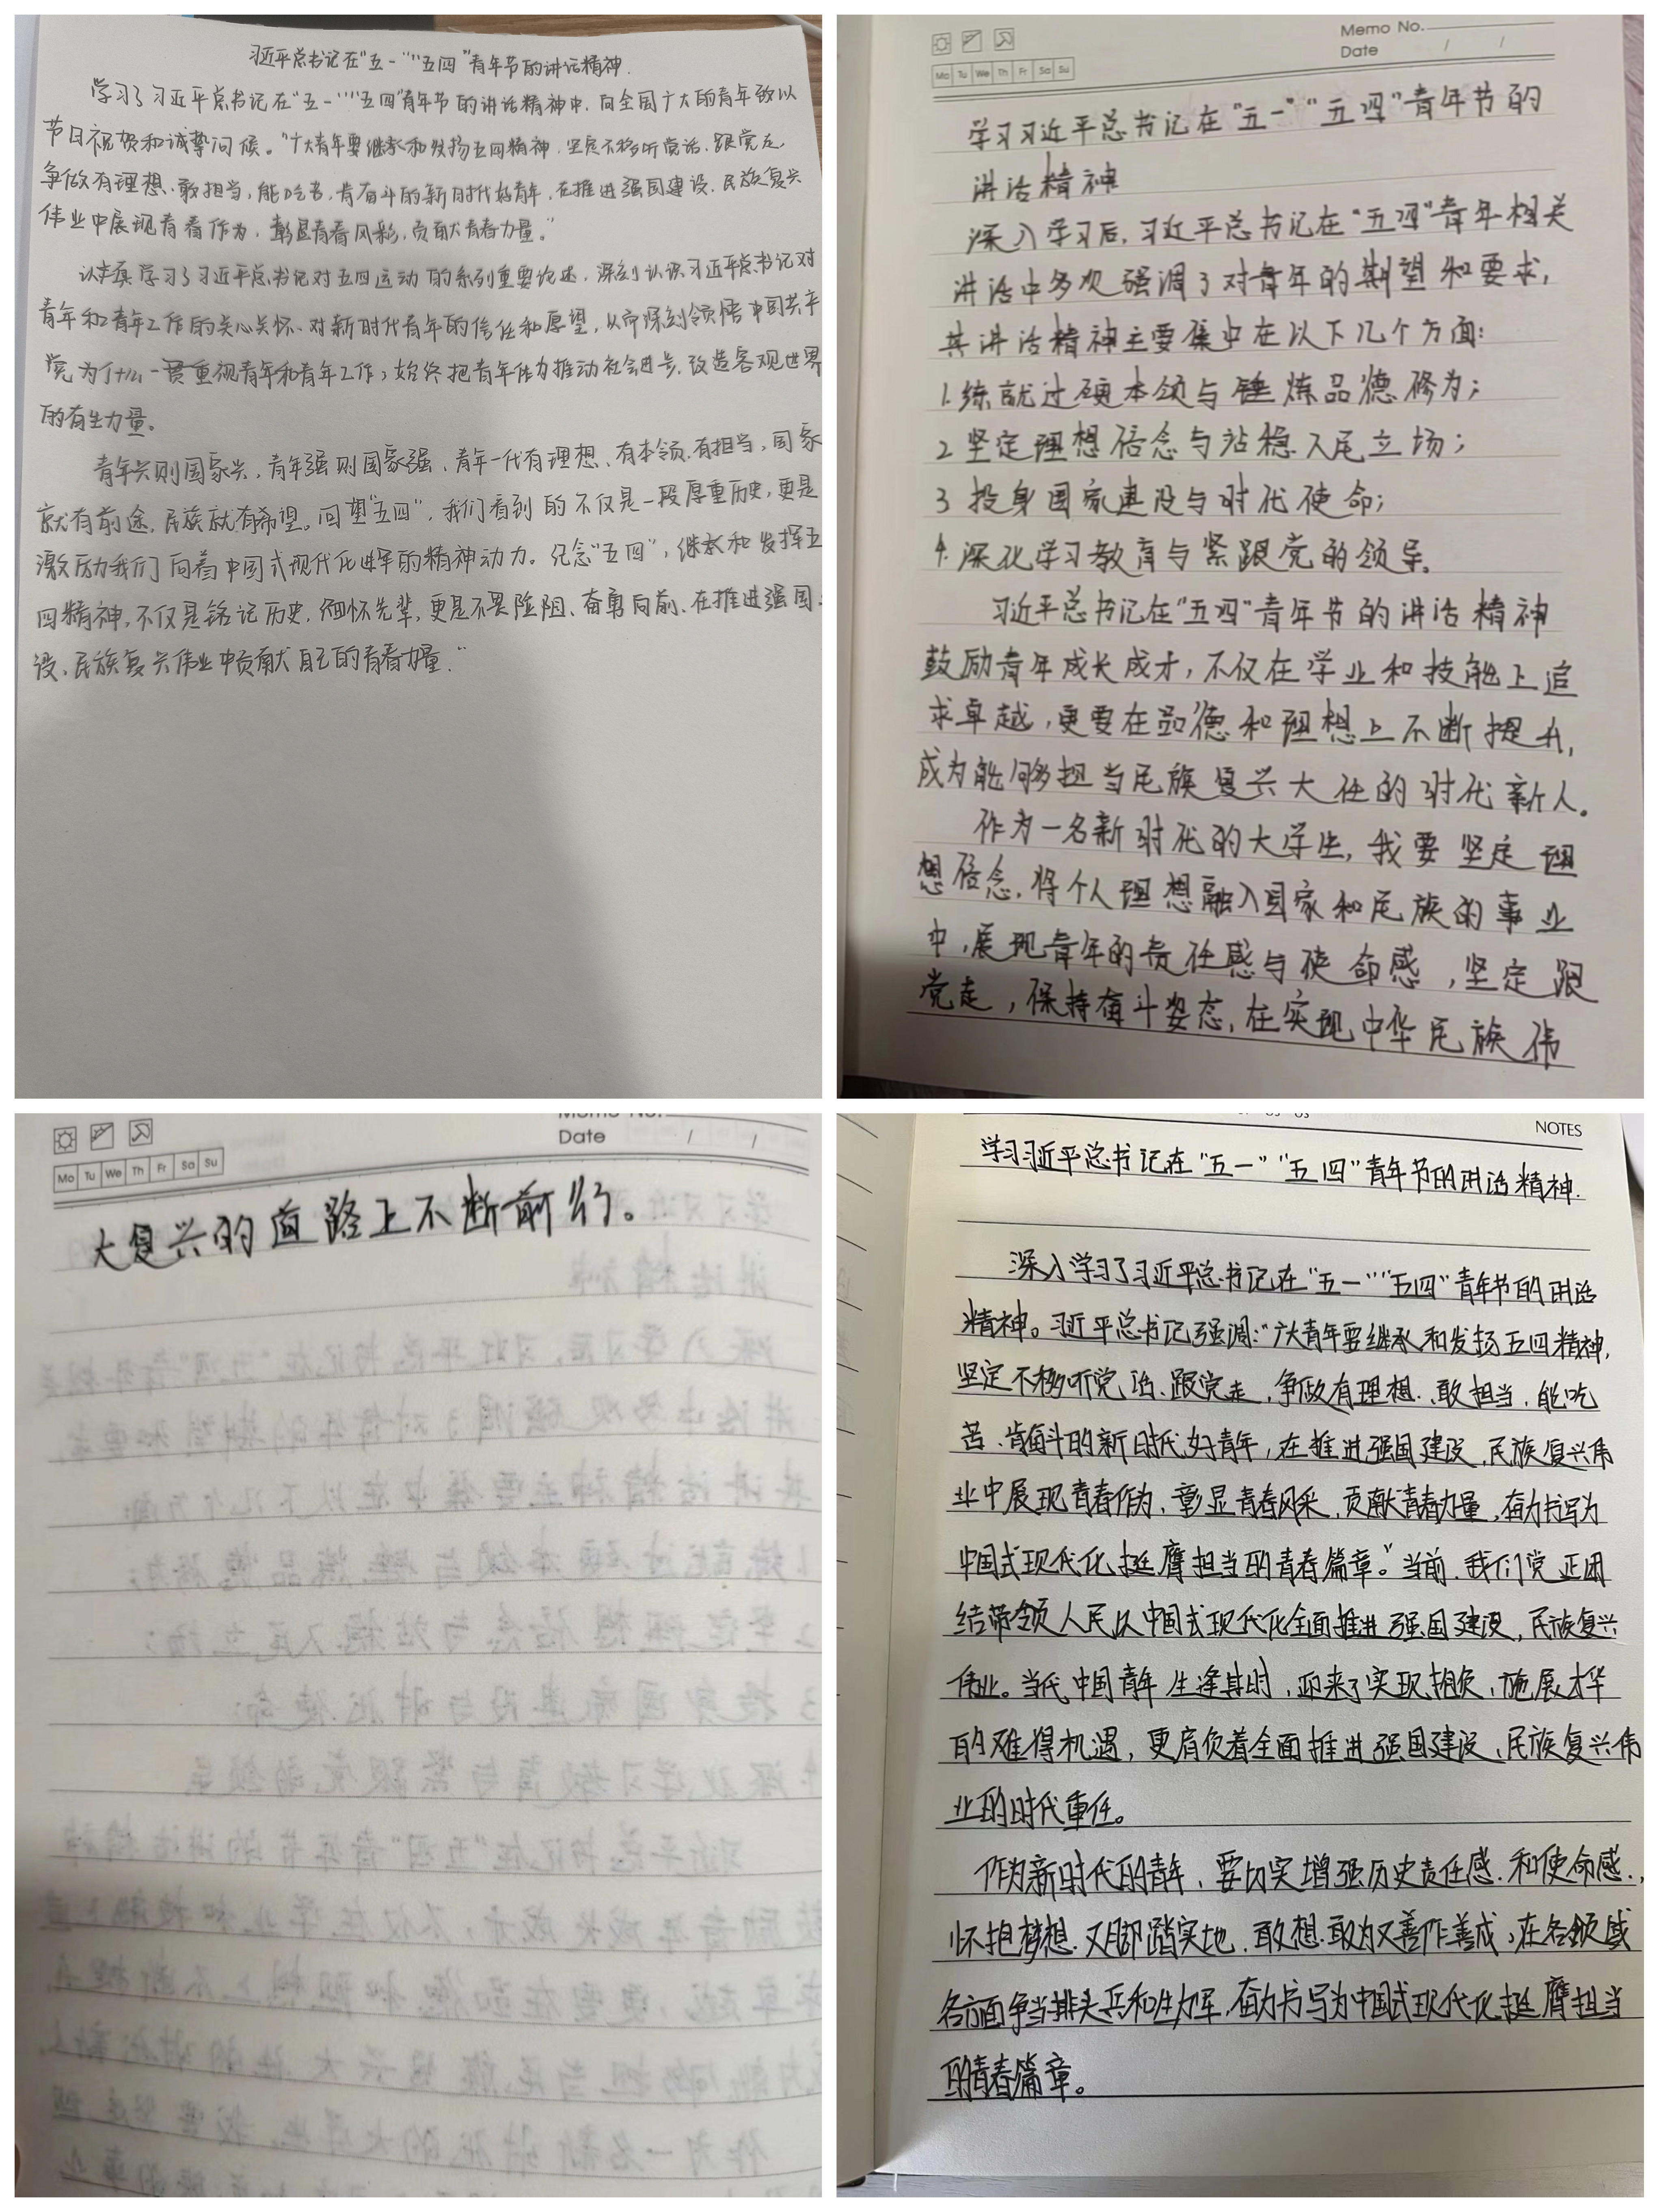 习近平总书记在“五一”“五四”青年节的讲话精神.
学习了习近平总书记在“五一”“五四”青年节的讲话精神中，向全国广大的青年致以
节日祝贺和诚挚问候。“广大青年要继承和发扬五四精神，坚定不移听党话、跟党走，
争做有理想、敢担当，能吃苦，肯奋斗的新时代好青年，在推进强国建设、民族复兴
伟业中展现青春作为，彰显青春风彩，贡献青春力量。”
认真学习了习近平总书记对五四运动的系列重要论述，深刻认识习近平总书记对
青年和青年工作的关心关怀、对新时代青年的信任和愿望，从而深刻领悟中国共产
党为什么一贯重视青年和青年工作，始终把青年作为推动社会进步、改造客观世界
的有生力量。
青年兴则国家兴，青年强则国家强，青年一代有理想、有本领、有担当，国家
就有前途，民族就有希望。回望“五四”，我们看到的不仅是一段厚重历史，更是
激励我们向着中国式现代化进军的精神动力。纪念“五四”，继承和发挥五
四精神，不仅是铭记历史，缅怀先辈，更是不畏险阻、奋勇向前、在推进强国
设、民族复兴伟业中贡献自己的青春力量.”
Memo No.
Date / /
Mo Tu We Th Fr Sa Su
学习习近平总书记在“五一”“五四”青年节的
讲话精神
深入学习后，习近平总书记在“五四”青年相关
讲话中多次强调了对青年的期望和要求，
其讲话精神主要集中在以下几个方面：
1.练就过硬本领与锤炼品德修为；
2 坚定理想信念与站稳人民立场；
3 投身国家建设与时代使命；
4.深化学习教育与紧跟党的领导。
习近平总书记在“五四”青年节的讲话精神
鼓励青年成长成才，不仅在学业和技能上追
求卓越，更要在品德和理想上不断提升，
成为能够担当民族复兴大任的时代新人。
作为一名新时代的大学生，我要坚定理
想信念，将个人理想融入国家和民族的事业
中，展现青年的责任感与使命感，坚定跟
党走，保持奋斗姿态，在实现中华民族伟
Memo No.
Date / /
Mo Tu We Th Fr Sa Su
大复兴的道路上不断前行。
NOTES
学习习近平总书记在“五一”“五四”青年节的讲话精神.
深入学习了习近平总书记在“五一”“五四”青年节的讲话
精神。习近平总书记强调：“广大青年要继承和发扬五四精神，
坚定不移听党话、跟党走，争做有理想、敢担当，能吃
苦、肯奋斗的新时代好青年，在推进强国建设，民族复兴伟
业中展现青春作为，彰显青春风采，贡献青春力量，奋力书写为
中国式现代化挺膺担当的青春篇章。”当前，我们党正团
结带领人民以中国式现代化全面推进强国建设，民族复兴
伟业。当代中国青年生逢其时，迎来了实现抱负，施展才华
的难得机遇，更肩负着全面推进强国建设、民族复兴伟
业的时代重任。
作为新时代的青年，要切实增强历史责任感.和使命感.，
怀抱梦想.又脚踏实地、敢想敢为又善作善成，在各领域
各方面争当排头兵和生力军，奋力书写为中国式现代化挺膺担当
的青春篇章。